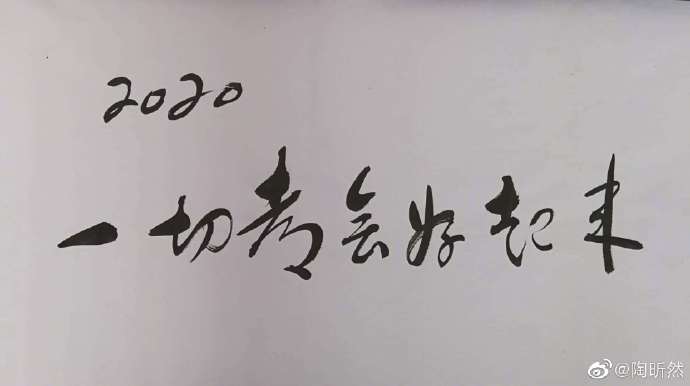 2020
一切都会好起来
@陶昕然